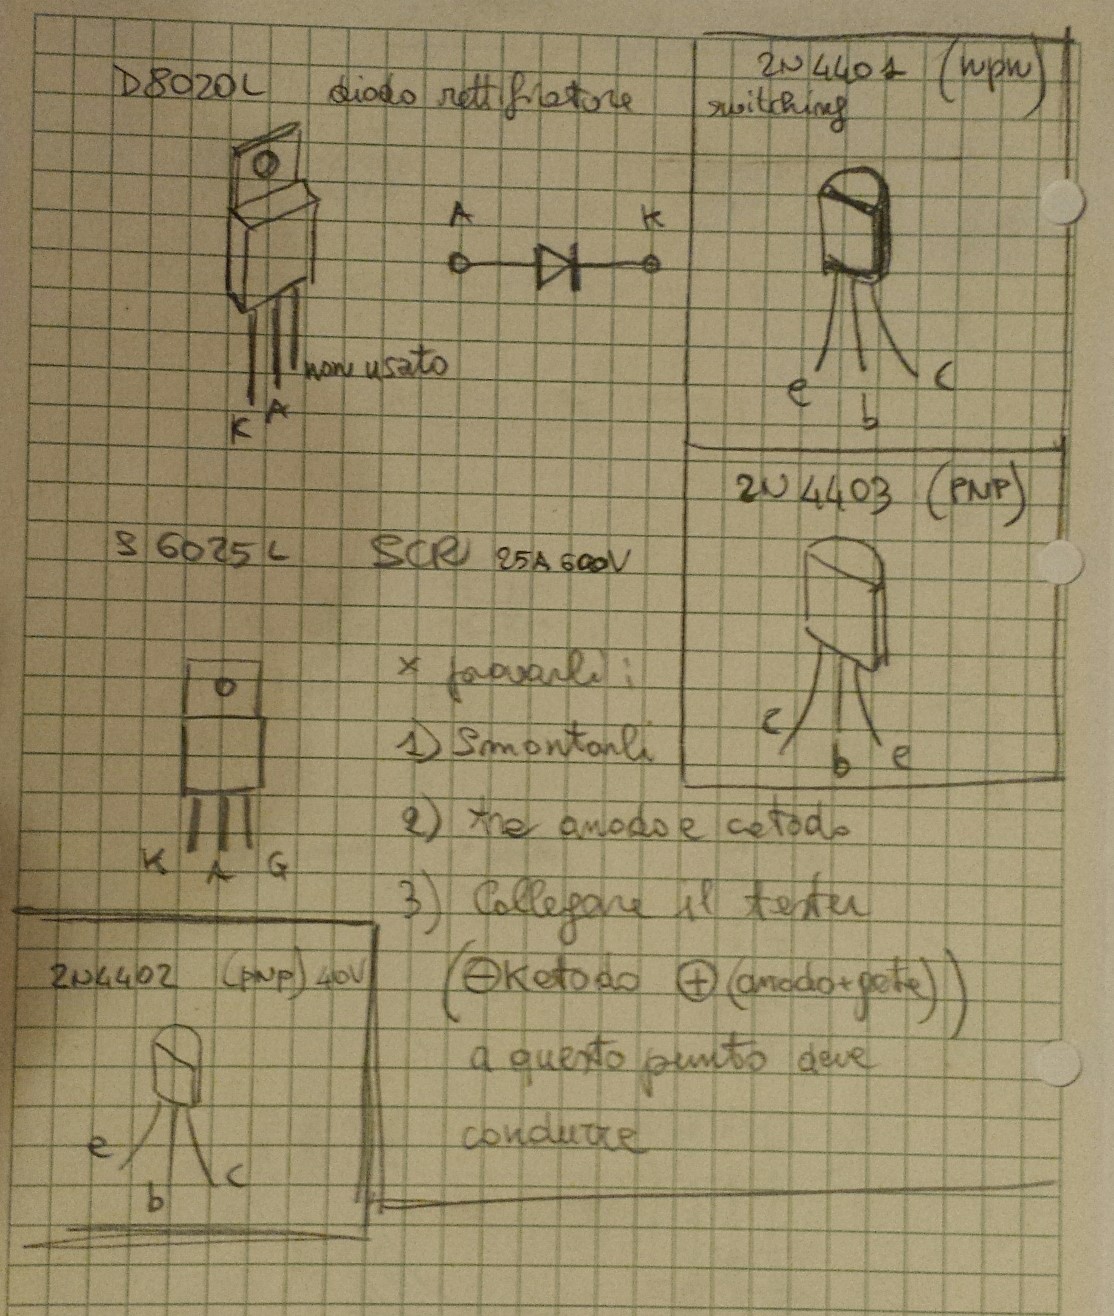 D8020L diodo rettificatore
A K
non usato
K A
2N4401 (npn)
switching
e b c
2N4403 (PNP)
c b e
S6025L SCR 25A 600V
K A G
x provarli:
1) Smontarli
2) tra anodo e catodo
3) Collegare il tester
(⊖Katodo ⊕(anodo+gate))
a questo punto deve
condurre
2N4402 (PNP) 40V
e b c